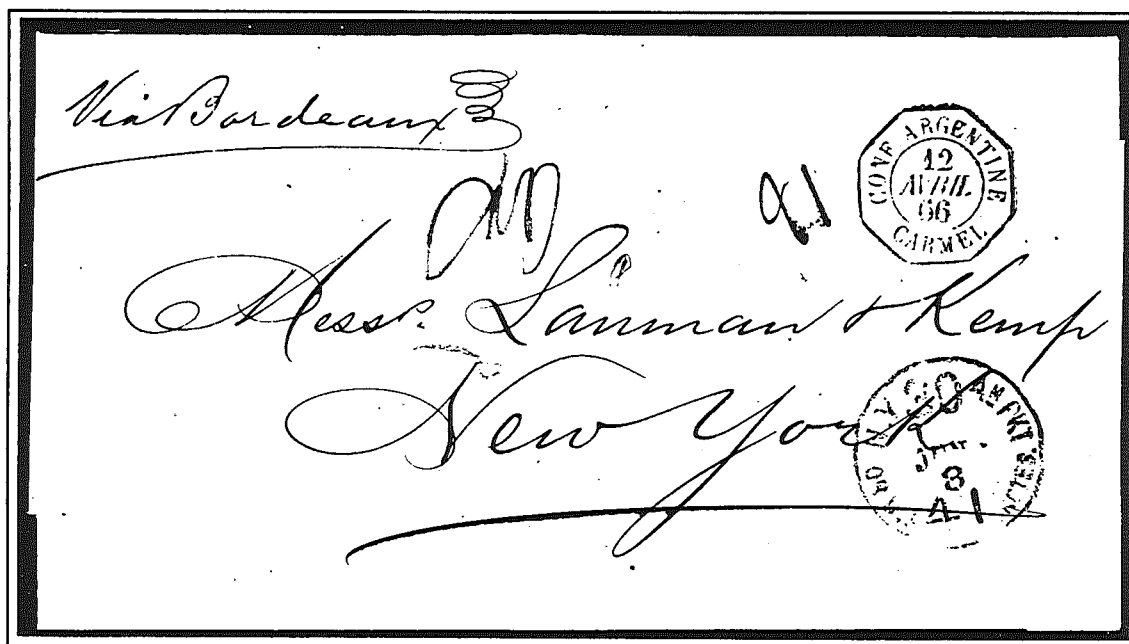 Via Bordeaux
CONF ARGENTINE
12
AVRIL
66
CARMEL
21
Messrs. Lanman & Kemp
New York
N.Y. 30 AM PKT
8
41